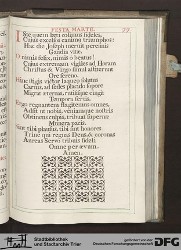 FESTA MARTII.
Iste quem læti colimus fideles,
Cuius excelsos canimus triumphos:
Hac die Joseph meruit perennis
Gaudia vitæ.
O nimis felix, nimis o beatus!
Cuius extremam vigiles ad horam
Christus & Virgo simul astiterunt
Ore sereno.
Hinc stygis victor laqueo solutus
Carnis, ad sedes placido sopore
Migrat æternas, rutilisque cingit
Tempora sertis.
Ergo regnantem flagitemus omnes,
Adsit ut nobis, veniamque nostris
Obtinens culpis, tribuat supernæ
Munera pacis.
Sint tibi plausus, tibi sint honores
Trine qui regnas Deus, & coronas
Aureas servo tribuis fideli
Omne per ævum
Amen.
Stadtbibliothek
und Stadtarchiv Trier
gefördert von der
Deutschen Forschungsgemeinschaft
DFG